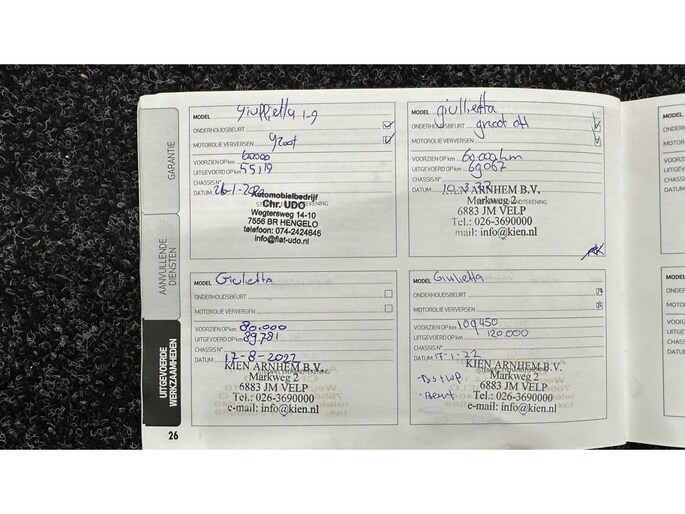 GARANTIE
AANVULLENDE
DIENSTEN
UITGEVOERDE
WERKZAAMHEDEN
26
MODEL Giulietta 1-9
ONDERHOUDSBEURT
MOTOROLIE VERVERSEN Groot
VOORZIEN OP km 60000
UITGEVOERD OP km 55119
CHASSIS N°
DATUM 26-1-20
Automobielbedrijf
Chr. UDO
Wegtersweg 14-10
7556 BR HENGELO
telefoon: 074-2424645
info@fiat-udo.nl
MODEL giullietta
ONDERHOUDSBEURT groot OH
MOTOROLIE VERVERSEN
VOORZIEN OP km 60000km
UITGEVOERD OP km 69067
CHASSIS N°
DATUM
KIEN ARNHEM B.V.
Markweg 2
6883 JM VELP
Tel.: 026-3690000
mail: info@kien.nl
MODEL Giulietta
ONDERHOUDSBEURT
MOTOROLIE VERVERSEN
VOORZIEN OP km 80.000
UITGEVOERD OP km 89781
CHASSIS N°
DATUM 17-8-2022
KIEN ARNHEM B.V.
Markweg 2
6883 JM VELP
Tel.: 026-3690000
e-mail: info@kien.nl
MODEL Giulietta
ONDERHOUDSBEURT
MOTOROLIE VERVERSEN
VOORZIEN OP km 109450
UITGEVOERD OP km 120.000
CHASSIS N°
DATUM
KIEN ARNHEM B.V.
Markweg 2
6883 JM VELP
Tel.: 026-3690000
e-mail: info@kien.nl